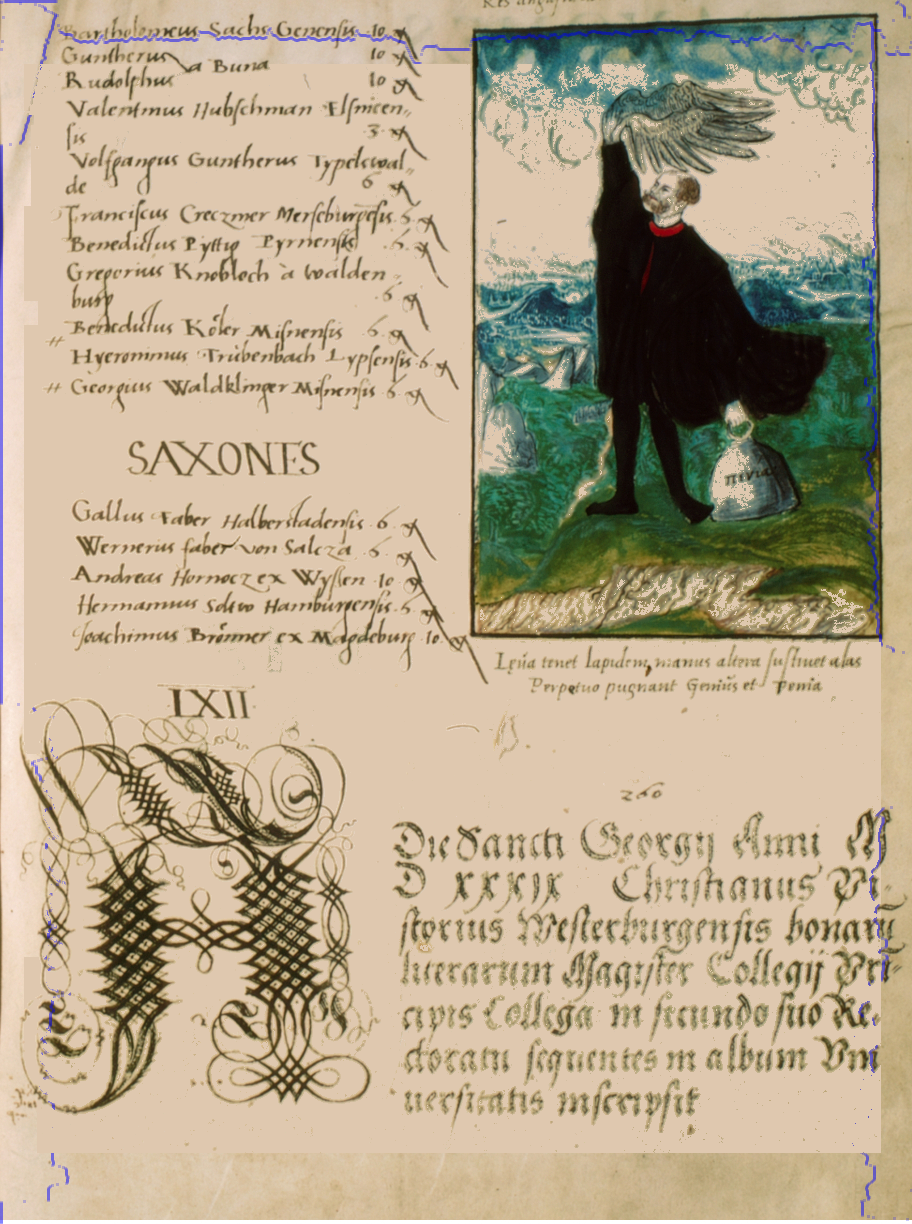 Bartholomeus Sachs Genensis 10 gl
Guntherus
a Buna 10 gl
Rudolphus 10 gl
Valentinus Hubschman Elsnicen„
sis 3 gl
Volfgangus Guntherus Typelswal„
de 6 gl
Franciscus Creczmer Merseburgensis 5 gl
Benedictus Pyttig Pyrnensis 6 gl
Gregorius Knobloch à Walden„
burg 6 gl
Benedictus Köler Misnensis 6 gl
Hyeronimus Trübenbach Lypsensis 6 gl
Georgius Waldklinger Misnensis 6 gl
SAXONES
Gallus Faber Halberstadensis 6 gl
Wernerius faber von Salcza 6 gl
Andreas Hornocz ex Wyssen 10 gl
Hermannus Hamburgensis 5 gl
Joachimus Brönner ex Magdeburg 10 gl
penia
Leua tenet lapidem, manus altera sustinet alas
Perpetuo pugnant Genius et Penia
LXII
260
A
Die Sancti Georgij Anni M
D XXXIX Christianus Pi-
storius Westerburgensis bonarū
literarum Magister Collegij Prī-
cipis Collega in secundo suo Re-
ctoratu sequentes in album Vni
uersitatis inscripsit